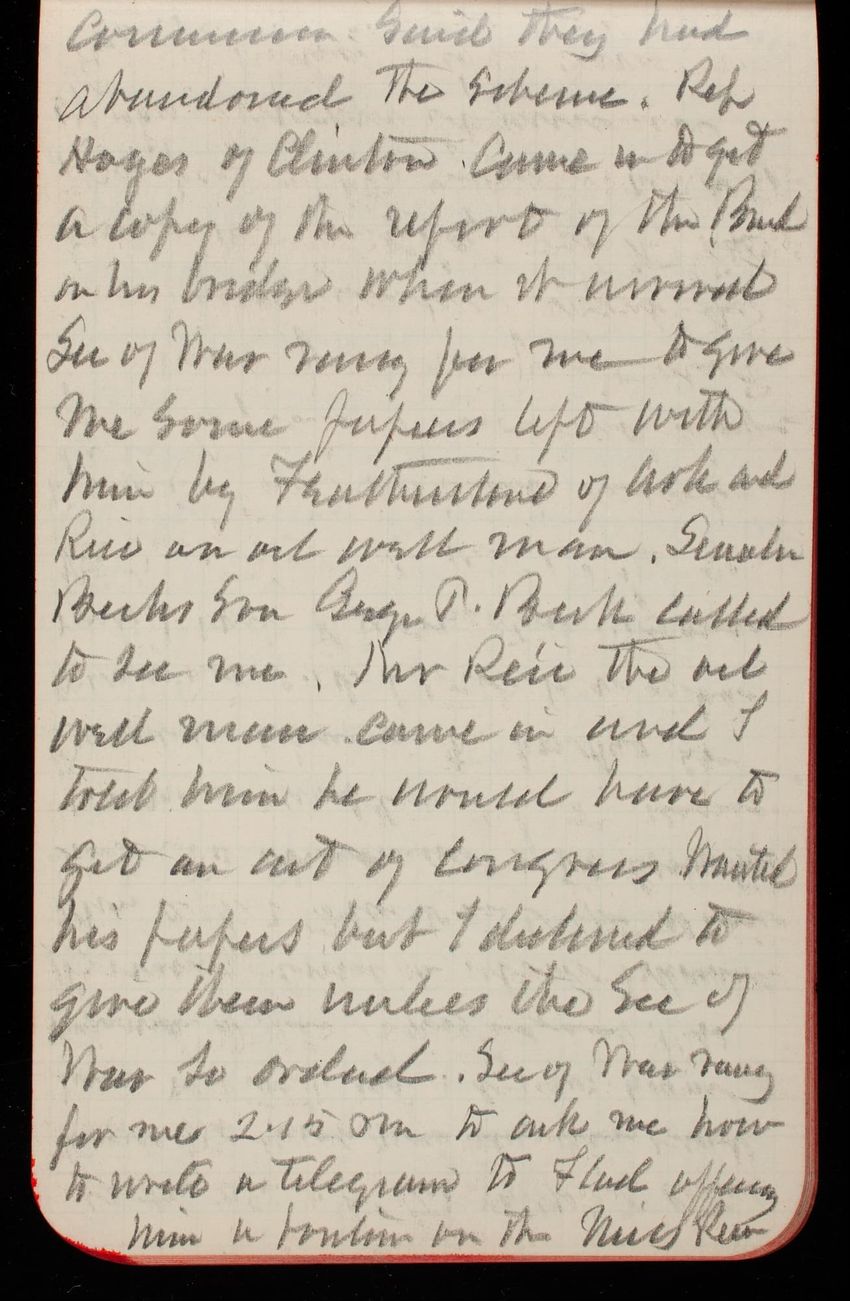 Common said they had
abandoned the scheme. Rep
Hayes of Clinton came in to get
a copy of the report of the Board
on his bridge when it arrived
Sec of War rang for me to give
me some papers left with
him by Featherstone of Ark and
Rice an oil well man. Senator
Becks son George T. Beck called
to see me. Mr Rice the oil
well man came in and I
told him he would have to
get an act of congress Wanted
his papers but I declined to
give them unless the Sec of
War so ordered. Sec of War rang
for me 2.15 pm to ask me how
to write a telegram to Flad offering
him a position on the Miss River